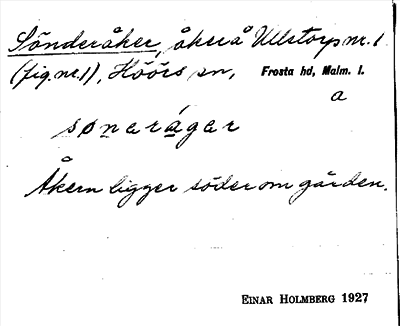 Sönderåker, åker å Ullstorp nr. 1
(fig. nr. 1), Höörs sn, Frosta hd, Malm. l.
a
sønarágar
Åkern ligger söder om gården.
EINAR HOLMBERG 1927